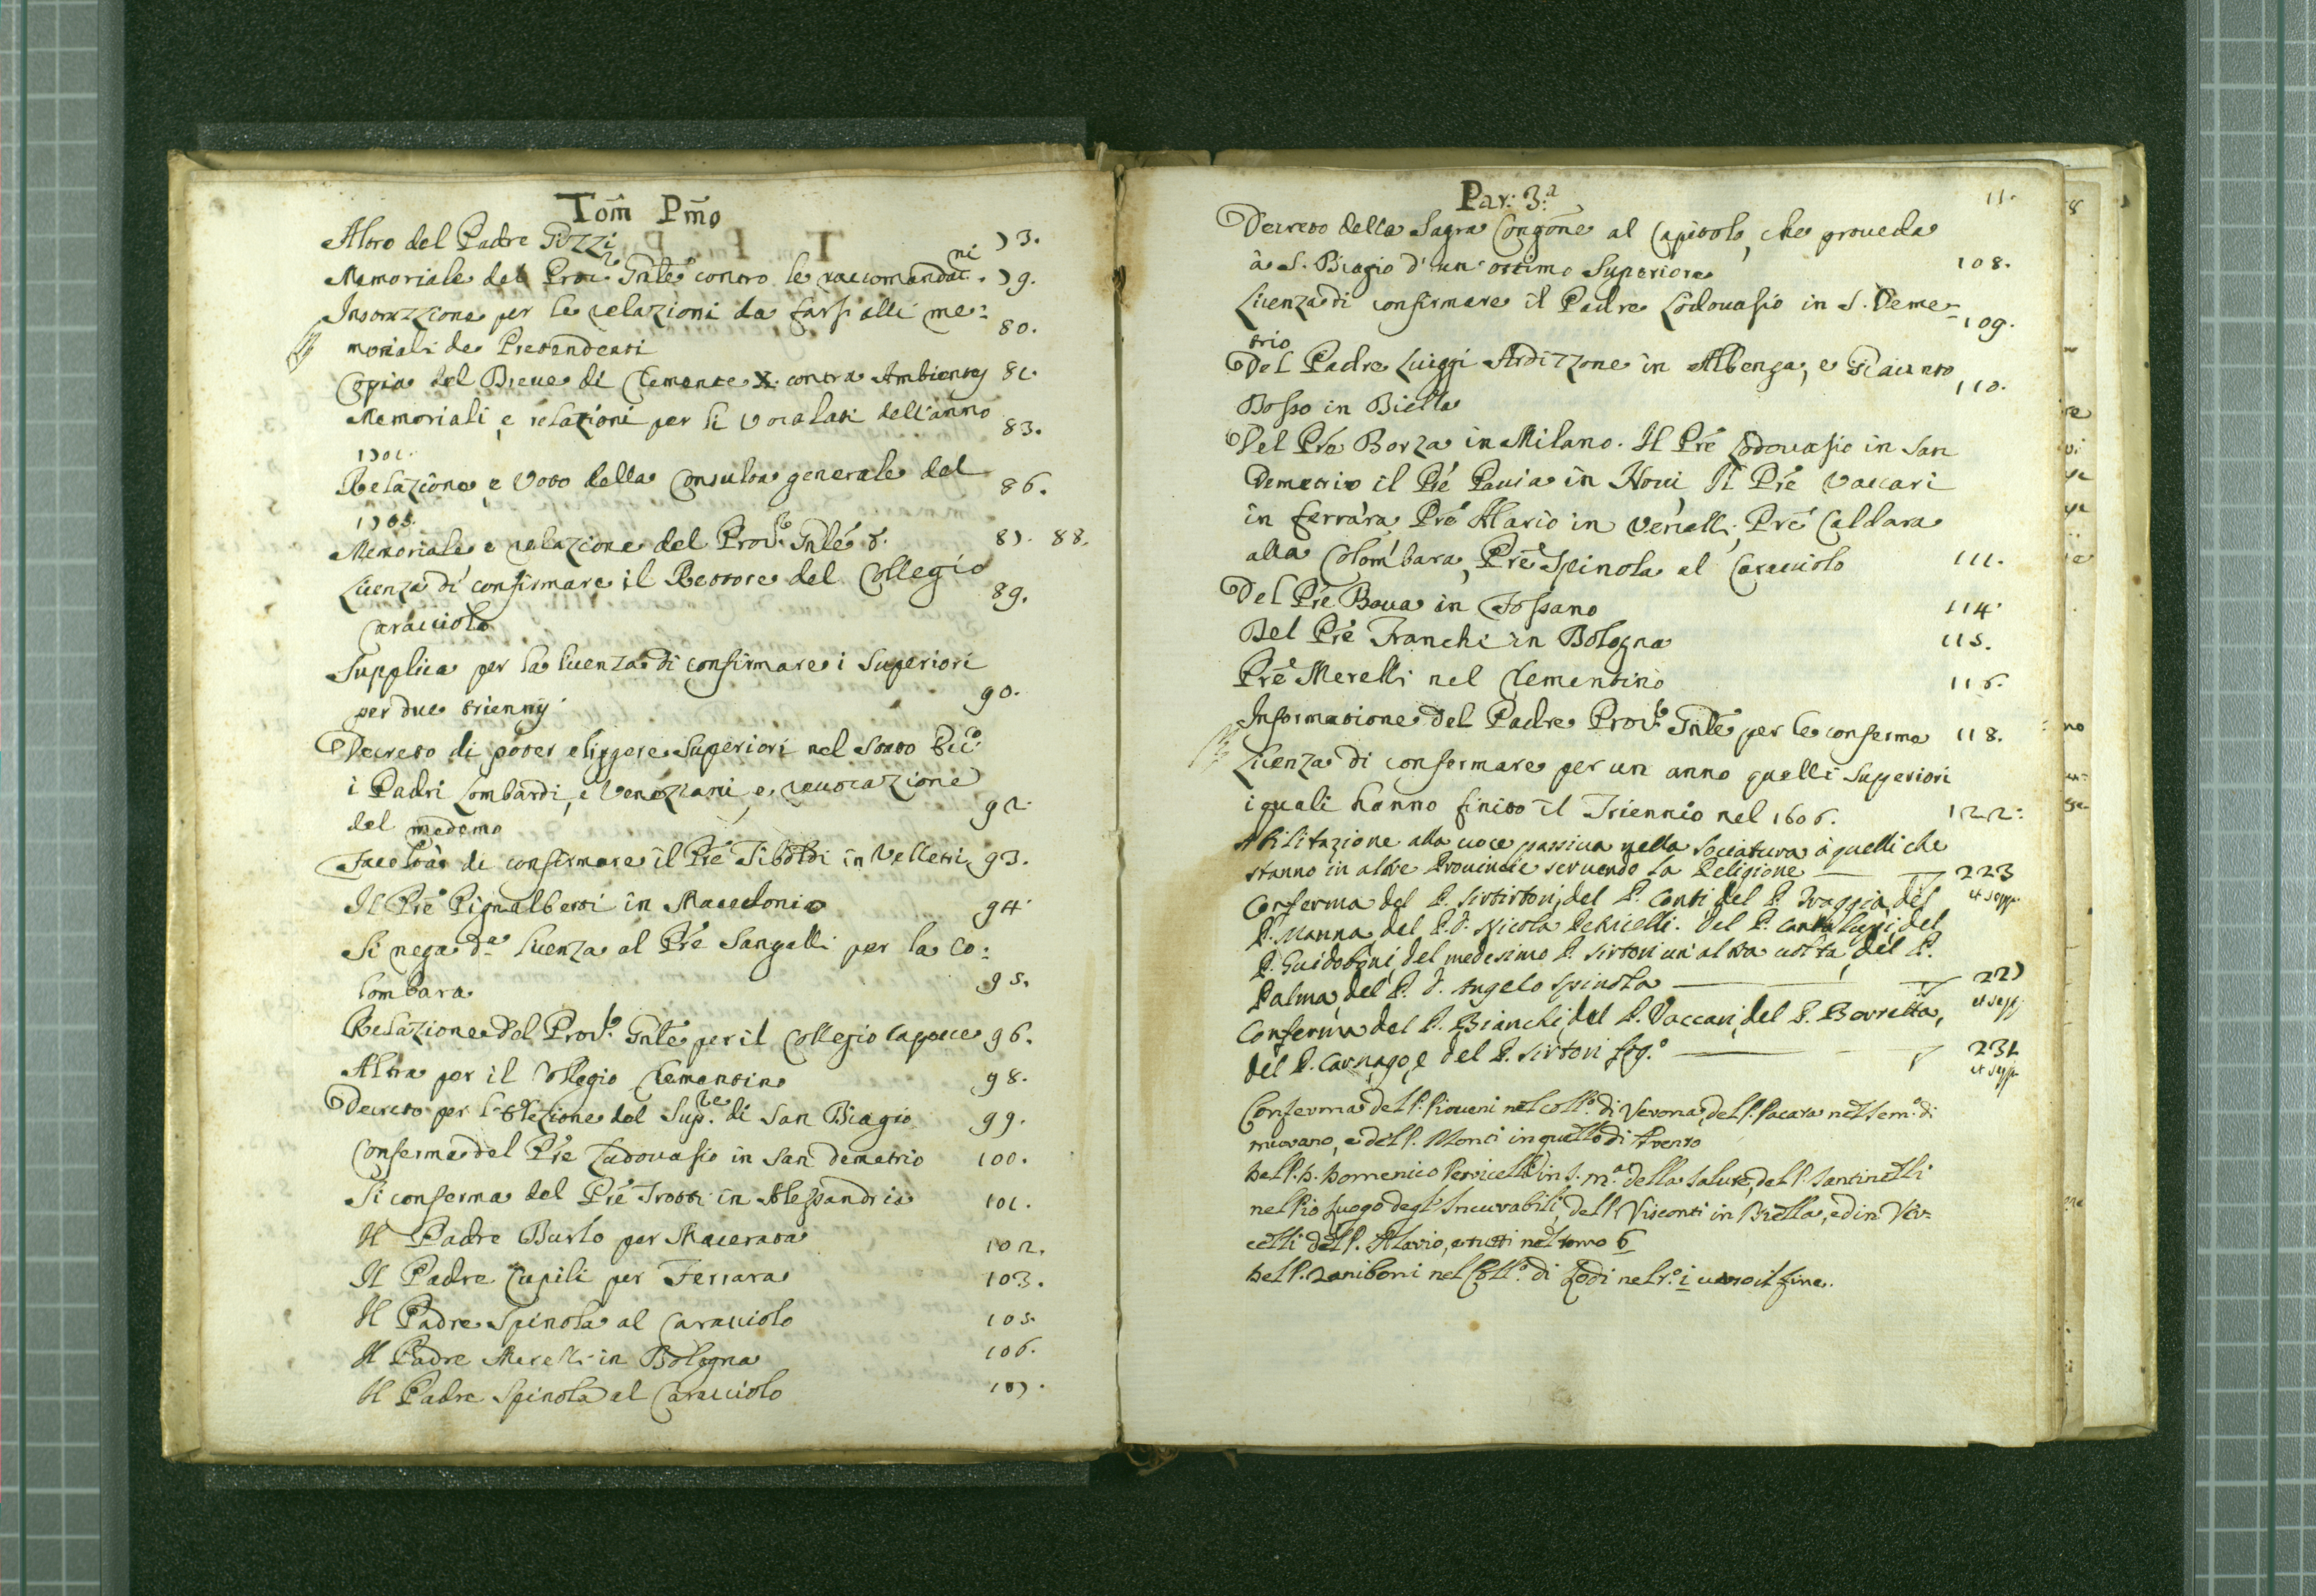 Tom̃ Pm̃o
Altro del Padre Pozzi 73.
Memoriale del Proc.re Gnle contro le raccomandat.ni 79.
per le relazioni da farsi alli me=
moriali de Pretendenti 80.
Copia del Breve di Clemente X. contra Ambientes 81.
Memoriali, e relazioni per li Vocalati dell'anno
1701. 83.
Relazione, e Voto della Consulta generale del
1705. 86.
Memoriale e relazione del Proc.re Gnle 87. 88.
Licenza di confirmare il Rettore del Collegio
Caracciolo 89.
Supplica per la licenza di confirmare i Superiori
per due trienny 90.
Decreto di poter eliggere Superiori nel Stato Ecc.o
i Padri Lombardi, e Veneziani, e revocazione
del medemo 92.
Facoltà di confirmare il Prē Tiboldi in Velletri 93.
Il Prē Pignalberti in Macedonio 94.
Si nega d.a licenza al Prē Sangalli per la Co=
lombara 95.
Relazione del Proc.re Gnle per il Collegio Capece 96.
Altra per il Collegio Clementino 98.
Decreto per l'elezione del Sup.re di San Biagio 99.
Conferma del Prē Lodovasio in San Demetrio 100.
Si conferma del Prē Trotti in Alessandria 101.
Il Padre Burlo per Macerata 102.
Il Padre Cupili per Ferrara 103.
Il Padre Spinola al Caracciolo 105.
Il Padre Merelli in Bologna 106.
Il Padre Spinola al Caracciolo 107.
Par: 3.a 11.
Decreto della Sagra Congõne al Capitolo, che proveda
à S. Biagio d'un ottimo Superiore 108.
Licenza di confirmare il Padre Lodovasio in S. Deme=
trio 109.
Del Padre Luiggi Ardizzone in Albenga, e Giacinto
Bosso in Biella 110.
Del Prē Borza in Milano. Il Prē Lodovasio in San
Demetrio il Prē Pavia in Novi Il Prē Vaccari
in Ferrara Prē Alario in Vercelli, Prē Caldara
alla Colombara, Prē Spinola al Caracciolo 111.
Del Prē Bova in Fossano 114.
Del Prē Franchi in Bologna 115.
Prē Merelli nel Clementino 116.
Informatione del Padre Proc.re Gnle per le conferme 118.
Licenza di confermare per un anno quelli Superiori
i quali hanno finito il Triennio nel 1606. 122:
Abilitazione alla voce passiva nella Sociatura à quelli che
stanno in altre Provincie servendo la Religione 223
et seqq.
Conferma del P. Sirtori, del P. Conti del P. Traggia, del
P. Manna del P. D. Nicola Petricelli. Del P. Cantalupi, del
P. Guidoboni, del medesimo P. Sirtori un'altra volta, del P.
Palma, del P. D. Angelo Spinola 227
et seqq.
Conferma del P. Bianchi, del P. Vaccari, del P. Berretta,
del P. Carnago, e del P. Sirtori 231
et seqq.
Conferma del P. Pioveni nel coll.o di Verona, del P. Pacara nel sem.o di
murano, e del P. Monti in quello di Trento
Del P. D. Domenico Petricelli in S. M.a della Salute, del P. Santinelli
nel Pio Luogo degl'Incurabili, del P. Visconti in Biella, ed in Ver=
celli del P. Alario, e tutti nel tomo 6
Del P. Zaniboni nel Coll.o di Lodi nel t.o i verso il fine.